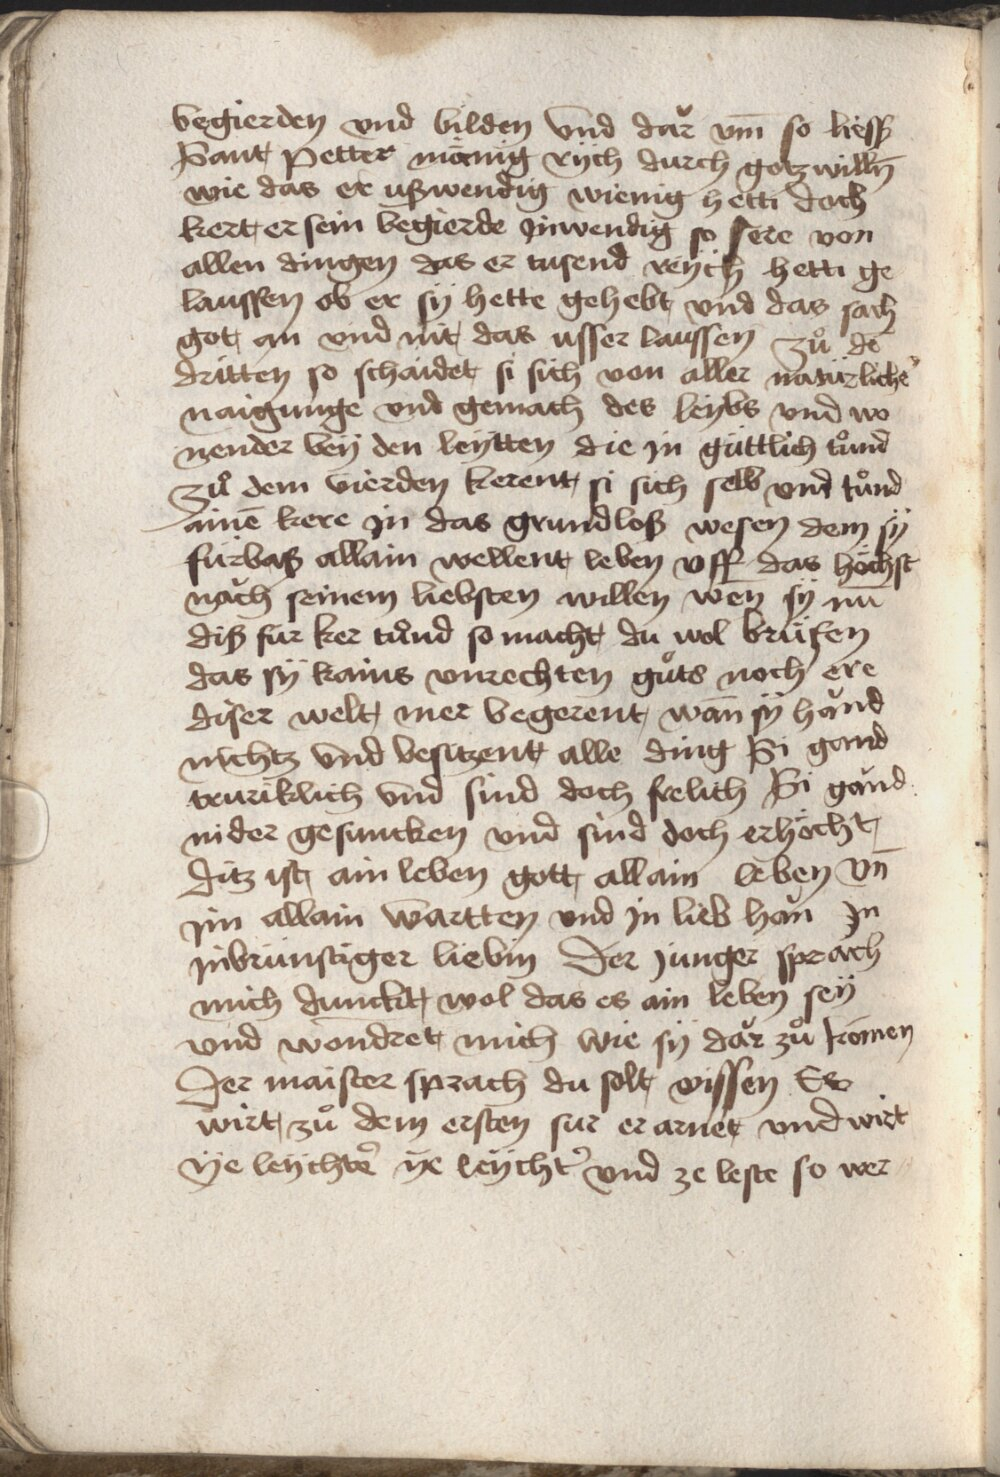 begierden vnd bilden vnd dar̆ vm̄ so liess
Sant Petter mänig rych durch gotz willn̄
wie das er ußwendig wienig hetti doch
kert er sein begierde jnwendig so sere von
allen dingen das er tusend reych hetti ge
laussen ob er sÿ hette gehebt vnd das sach
got an vnd nit das usser laussen zů dē
dritten so schaidet si sich von aller natürlicheʼ
naigunge vnd gemach des leybs vnd wo
nender beÿ den leÿtten die jn gůttlich tůnd
zů dem vierden kerent si sich selb vnd tůnd
ainē kere jn das grundloß wesen dem sÿ
fürbaß allain wellent leben vff das höchst
nǎch seinem liebsten willen wen̄ sÿ nū
diß für ker tůnd so macht du wol brüfen
das sÿ kains vnrechten gůts noch ere
diser welt mer begerent wan̄ sÿ hǎnd
nichtz vnd besitzent alle ding Si gand
truriklich vnd sind doch frelich Si gǎnd
nider gesuncken vnd sind doch erhöcht
ditz ist ain leben gott allain leben vn̄
jm allain wartten vnd jn lieb hǎn jn
jnbrünstiger liebin Der junger sprǎch
mich dunckt wol das es ain leben seÿ
vnd wondret mich wie sÿ dǎr zů komen
Der maister sprach du solt wissen Es
wirt zů dem ersten sur er arnet vnd wirt
ÿe leÿchteʼ ÿe leÿchtʼ vnd ze leste so wer